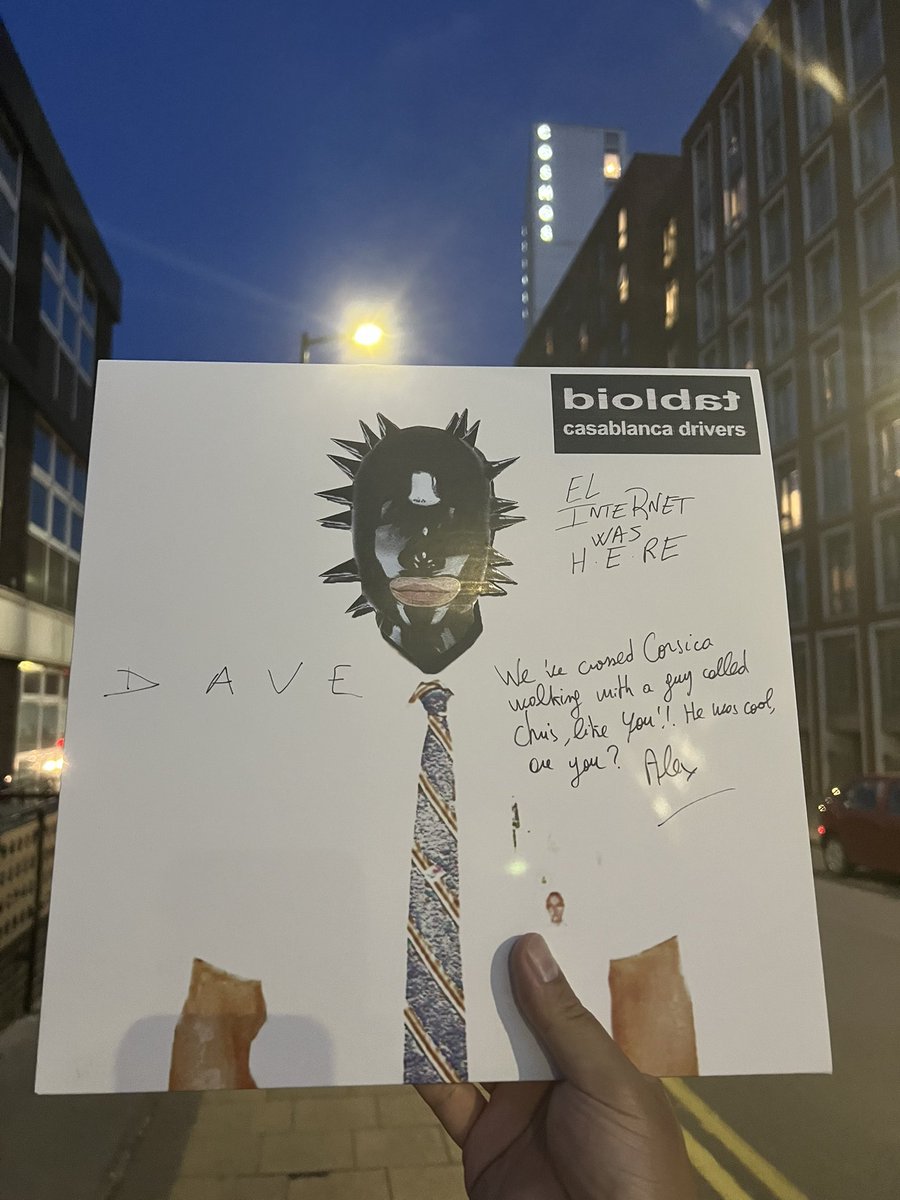 COSMOS
tabloid
casablanca drivers
EL
INTERNET
WAS
H.E.RE
DAVE
We've crossed Corsica
walking with a guy called
Chris, like You!! He was cool,
are you? Alex